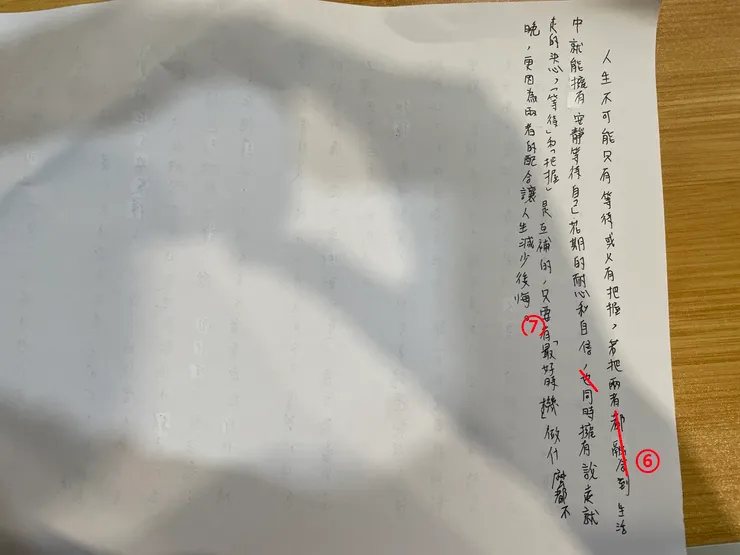 人生不可能只有等待或只有把握，若把兩者都融合到生活
中就能擁有安靜等待自己花期的耐心和自信，也同時擁有說走就
走的決心，「等待」和「把握」是互補的，只要有「最好時機」做什麼都不
晚，更因為兩者的配合讓人生減少後悔。
⑥
⑦